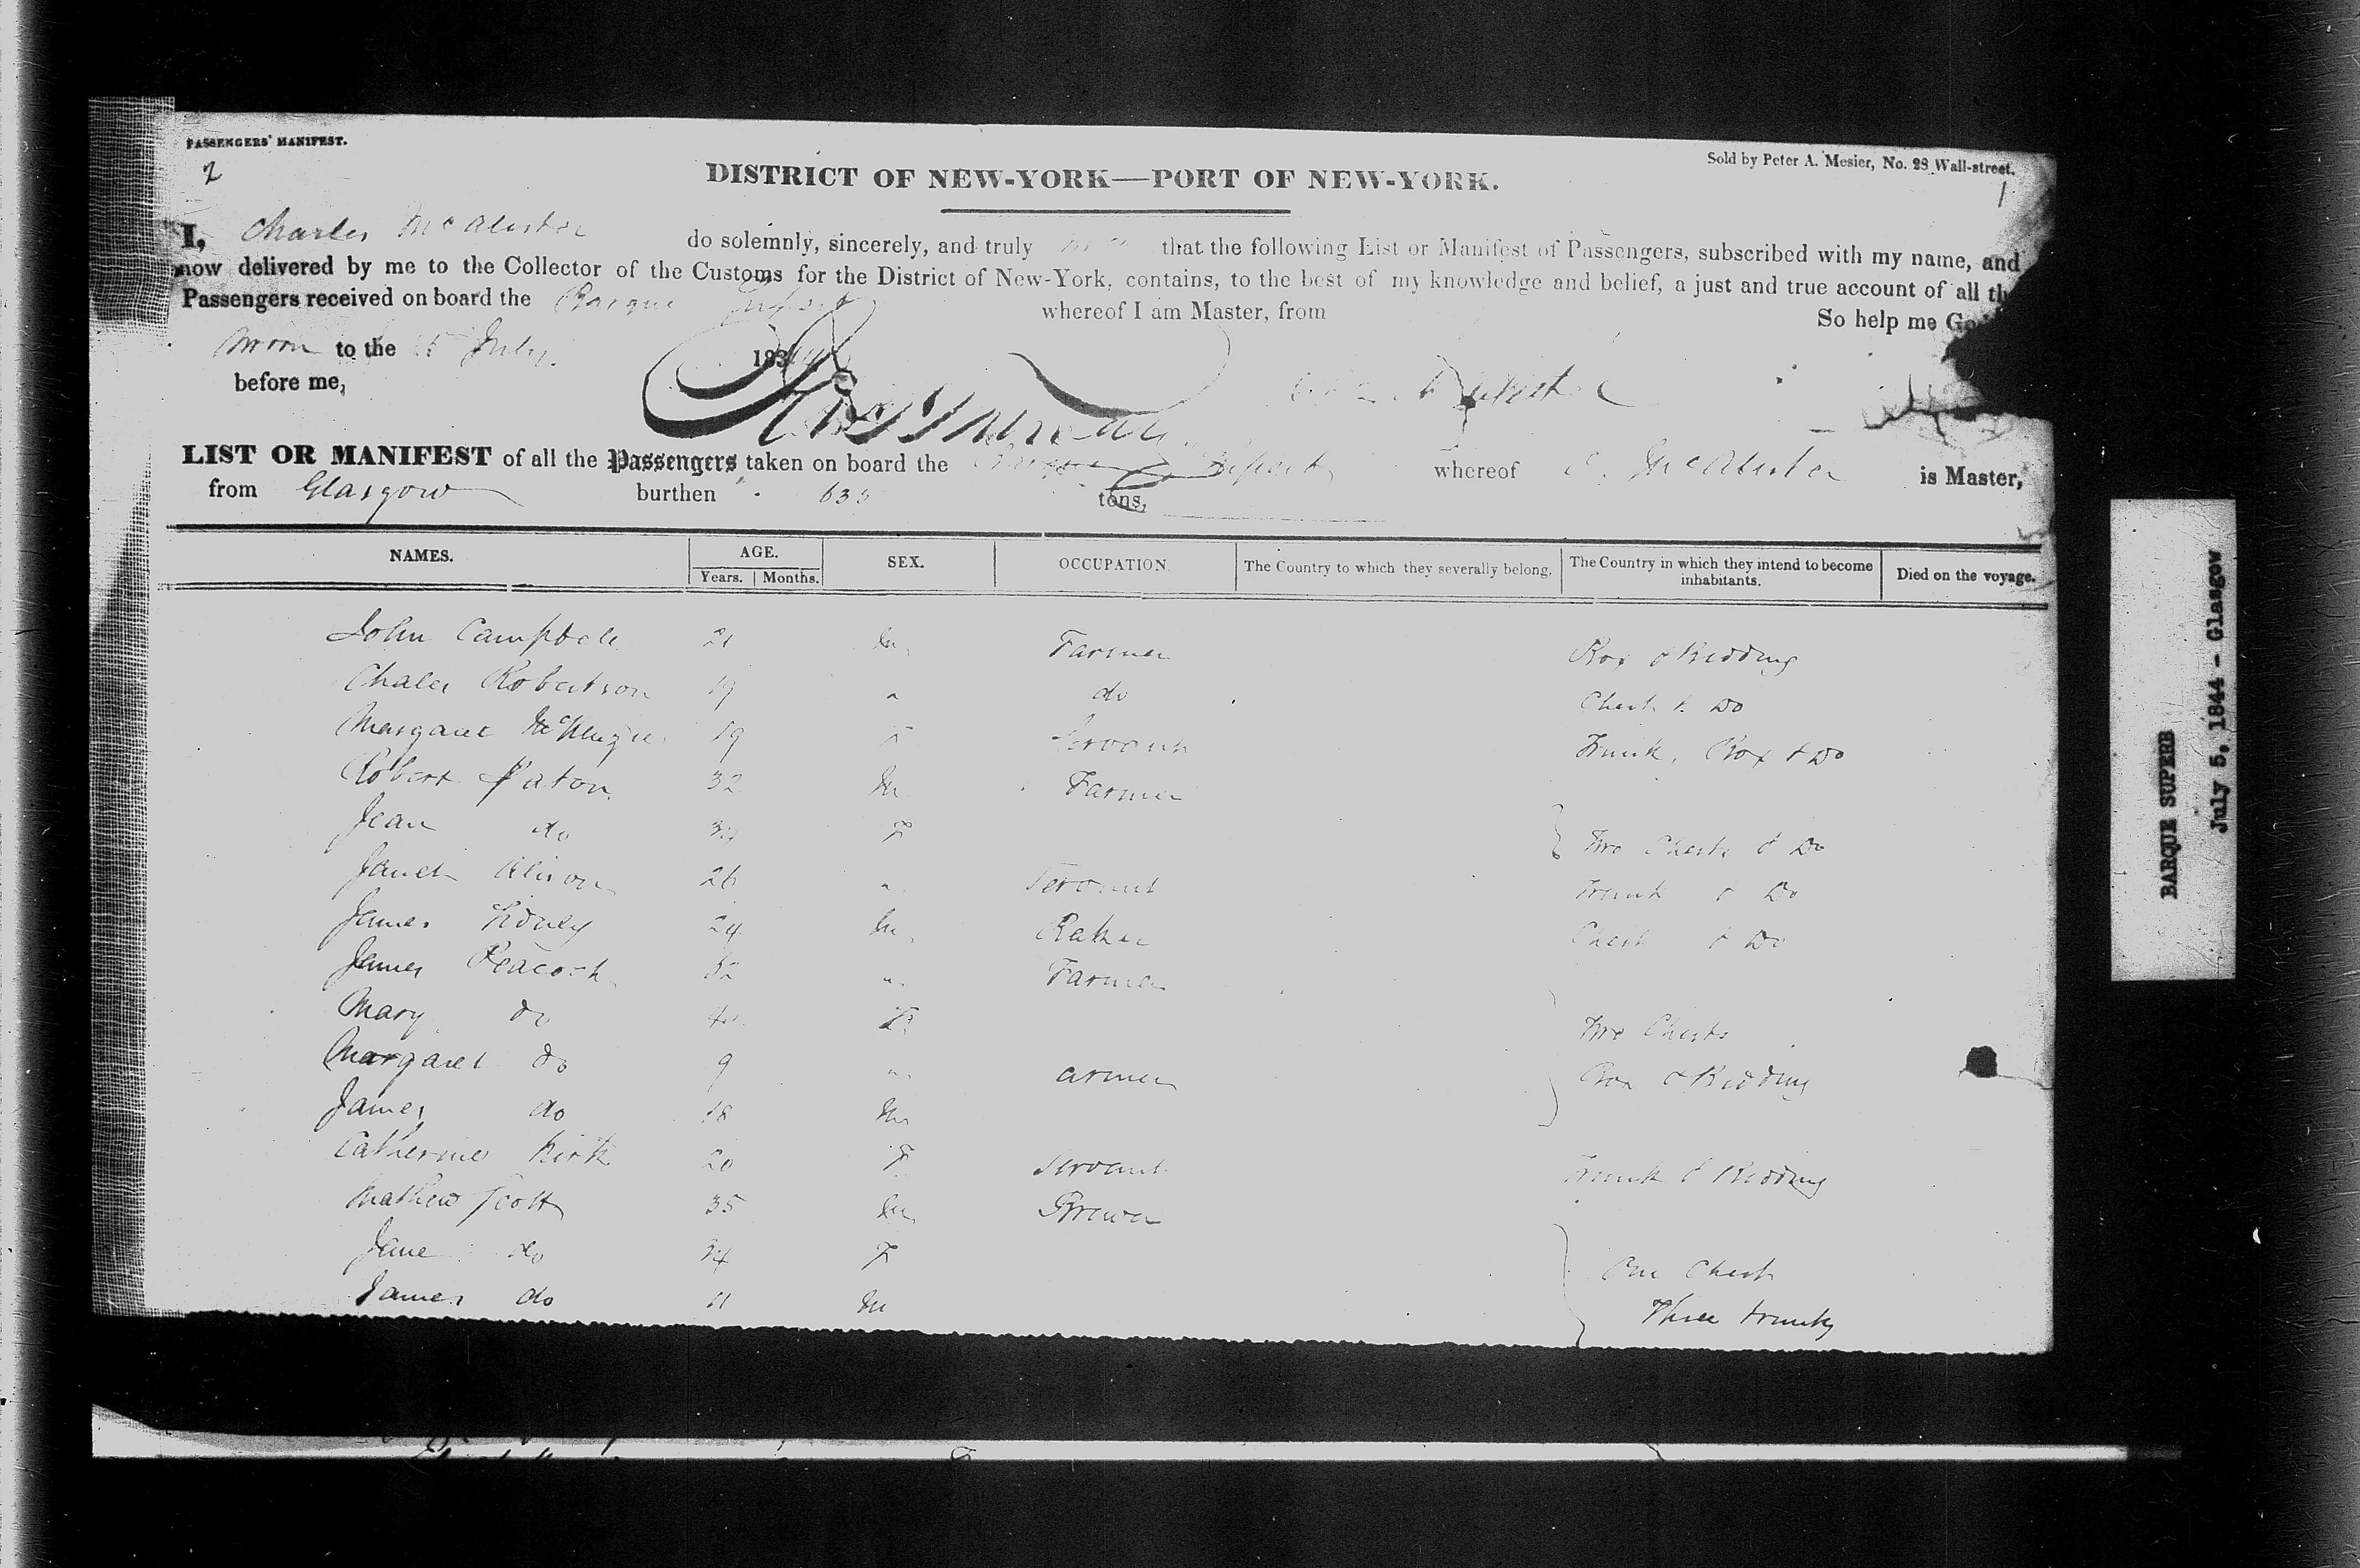 PASSENGERS' MANIFEST.
2
Sold by Peter A. Mesier, No. 28 Wall-street.
1
DISTRICT OF NEW-YORK—PORT OF NEW-YORK.
I, Charles McAlister do solemnly, sincerely, and truly that the following List or Manifest of Passengers, subscribed with my name, and
now delivered by me to the Collector of the Customs for the District of New-York, contains, to the best of my knowledge and belief, a just and true account of all the
Passengers received on board the Barque whereof I am Master, from
So help me God
to the 5 July 183
before me,
LIST OR MANIFEST of all the Passengers taken on board the whereof C. McAlister is Master,
from Glasgow burthen 635 tons,
NAMES. AGE. SEX. OCCUPATION. The Country to which they severally belong. The Country in which they intend to become inhabitants. Died on the voyage.
Years. Months.
John Campbell 21 M Farmer Box & Bedding
Chales Robertson 19 " do Chest & Do
Margaret McKenzie 19 F Servant Trunk, Box & Do
Robert Paton 32 M Farmer
Jean do F Two Chests & Do
Janet Alison 26 " Servant Trunk & Do
James 24 M Baker Chest & Do
James Peacock " Farmer
Mary do F Two Chests
Margaret do 9 " Box & Bedding
James do 18 M armer
Catherine Kirk 20 F Servant Trunk & Bedding
Mathew Scott 35 M Brewer
Jane do 34 F One Chest
James do 11 M Three trunks
BARQUE SUPERB
July 5, 1844 - Glasgow